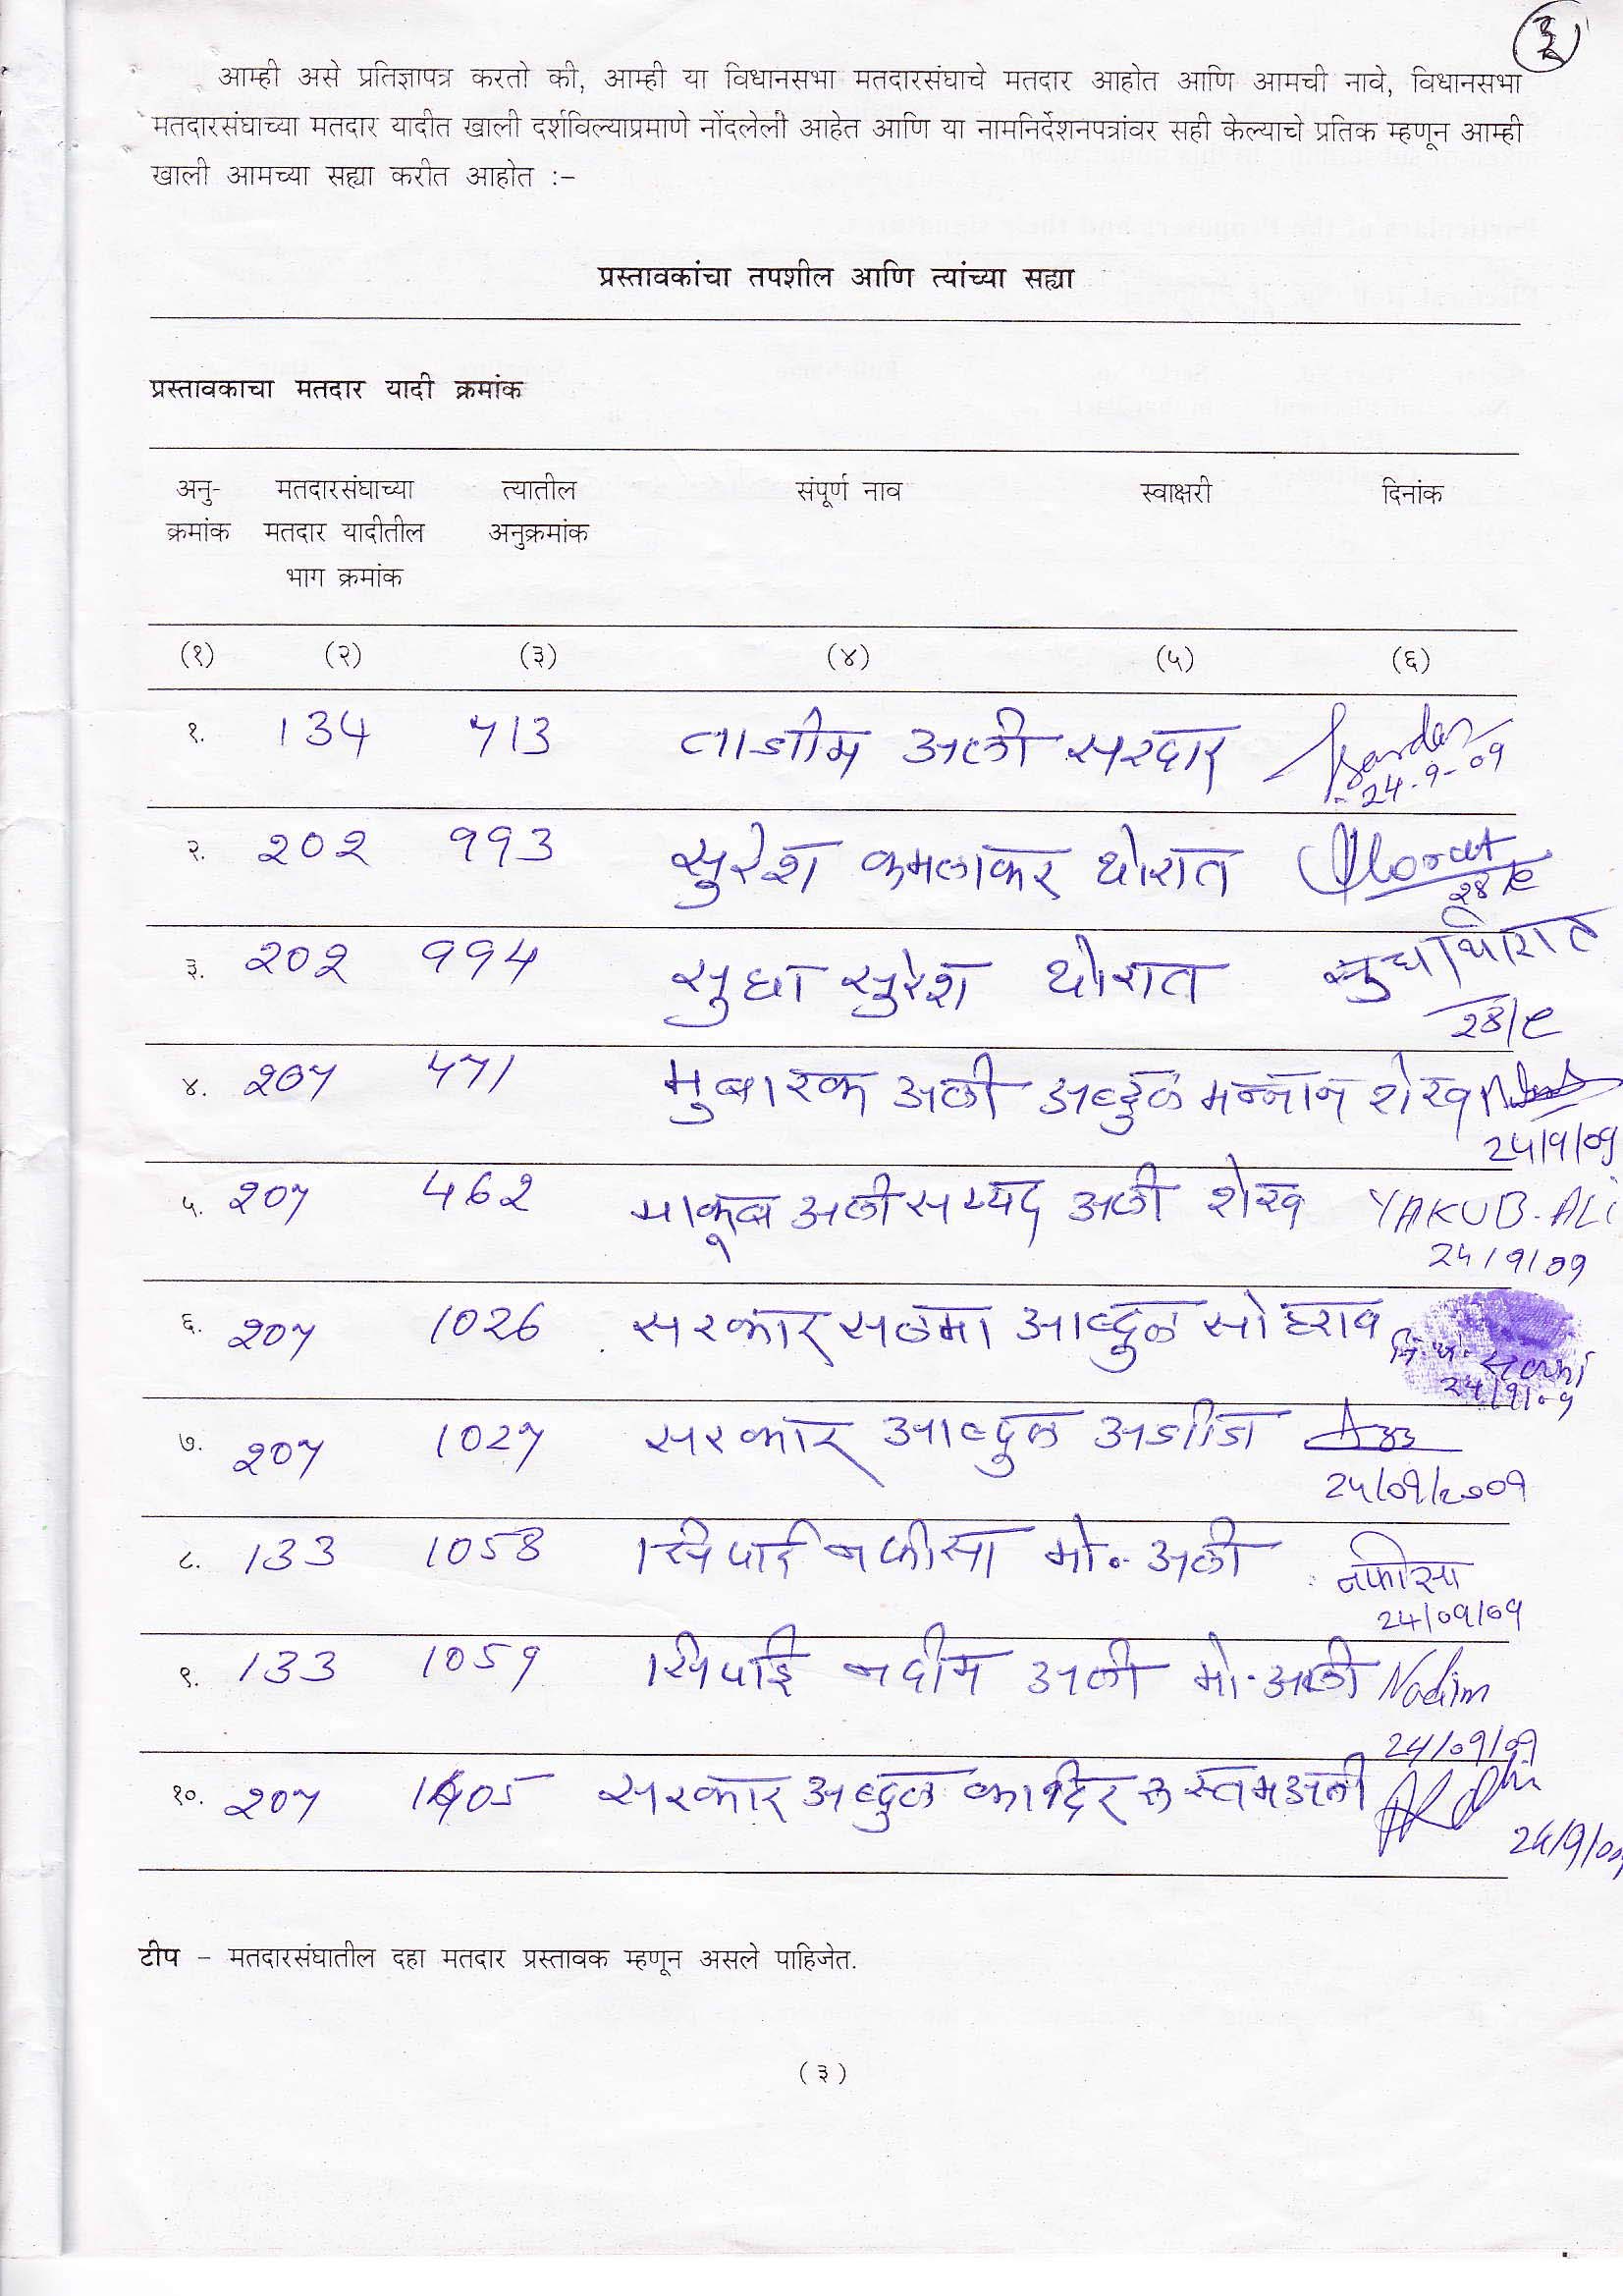 ३
आम्ही असे प्रतिज्ञापत्र करतो की, आम्ही या विधानसभा मतदारसंघाचे मतदार आहोत आणि आमची नावे, विधानसभा
मतदारसंघाच्या मतदार यादीत खाली दर्शविल्याप्रमाणे नोंदलेली आहेत आणि या नामनिर्देशनपत्रांवर सही केल्याचे प्रतिक म्हणून आम्ही
खाली आमच्या सह्या करीत आहोत :–
प्रस्तावकांचा तपशील आणि त्यांच्या सह्या
प्रस्तावकाचा मतदार यादी क्रमांक
अनु- मतदारसंघाच्या त्यातील संपूर्ण नाव स्वाक्षरी दिनांक
क्रमांक मतदार यादीतील अनुक्रमांक
भाग क्रमांक
(१) (२) (३) (४) (५) (६)
१. 134 713 ताजीम अली सरदार Sardar
24-9-09
२. २०२ 993 सुरेश कमलाकर थोरात Thorat
२४/९
३. २०२ 994 सुधा सुरेश थोरात सुधा थोरात
२४/९
४. 207 471 मुबारक अली अब्दुल मन्नान शेख
24/9/09
५. 207 462 याकूब अली सय्यद अली शेख YAKUB.ALI
24/9/09
६. 207 1026 सरकार सलमा आब्दुल सोहराव
24/9/09
७. 207 1027 सरकार आब्दुल अजीज
24/09/2009
८. 133 1058 सिपाई नफीसा मो. अली नफीसा
24/09/09
९. 133 1059 सिपाई नदीम अली मो. अली Nadim
24/09/09
१०. 207 1405 सरकार अब्दुल कादिर रुस्तमअली
24/9/09
टीप – मतदारसंघातील दहा मतदार प्रस्तावक म्हणून असले पाहिजेत.
(३)